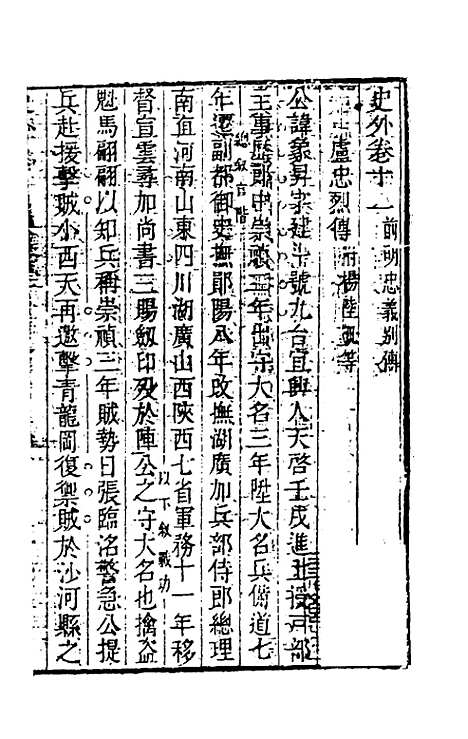 史外卷十一 前明忠義別傳
盧忠烈傳 附楊陸凱等
公諱象昇字建斗號九台宜興人天啓壬戌進士授戶部
主事歷郎中崇禎二年出守大名三年陞大名兵備道七
總敘官階
年遷副都御史撫鄖陽八年改撫湖廣加兵部侍郎總理
南直河南山東四川湖廣山西陝西七省軍務十一年移
督宣雲尋加尚書三賜劍印歿於陣公之守大名也擒盜
以下敘戰功
魁馬翩翩以知兵稱崇禎三年賊勢日張臨洺警急公提
兵赴援擊賊小西天再邀擊青龍岡復禦賊於沙河縣之